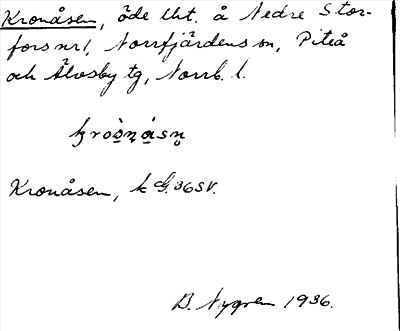 Kronåsen, öde lht. å Nedre Stor-
fors nr 1, Norrfjärdens sn, Piteå
och Älvsby tg, Norrb. l.
Kronåsen, k 36 SV.
B. Nygren 1936.